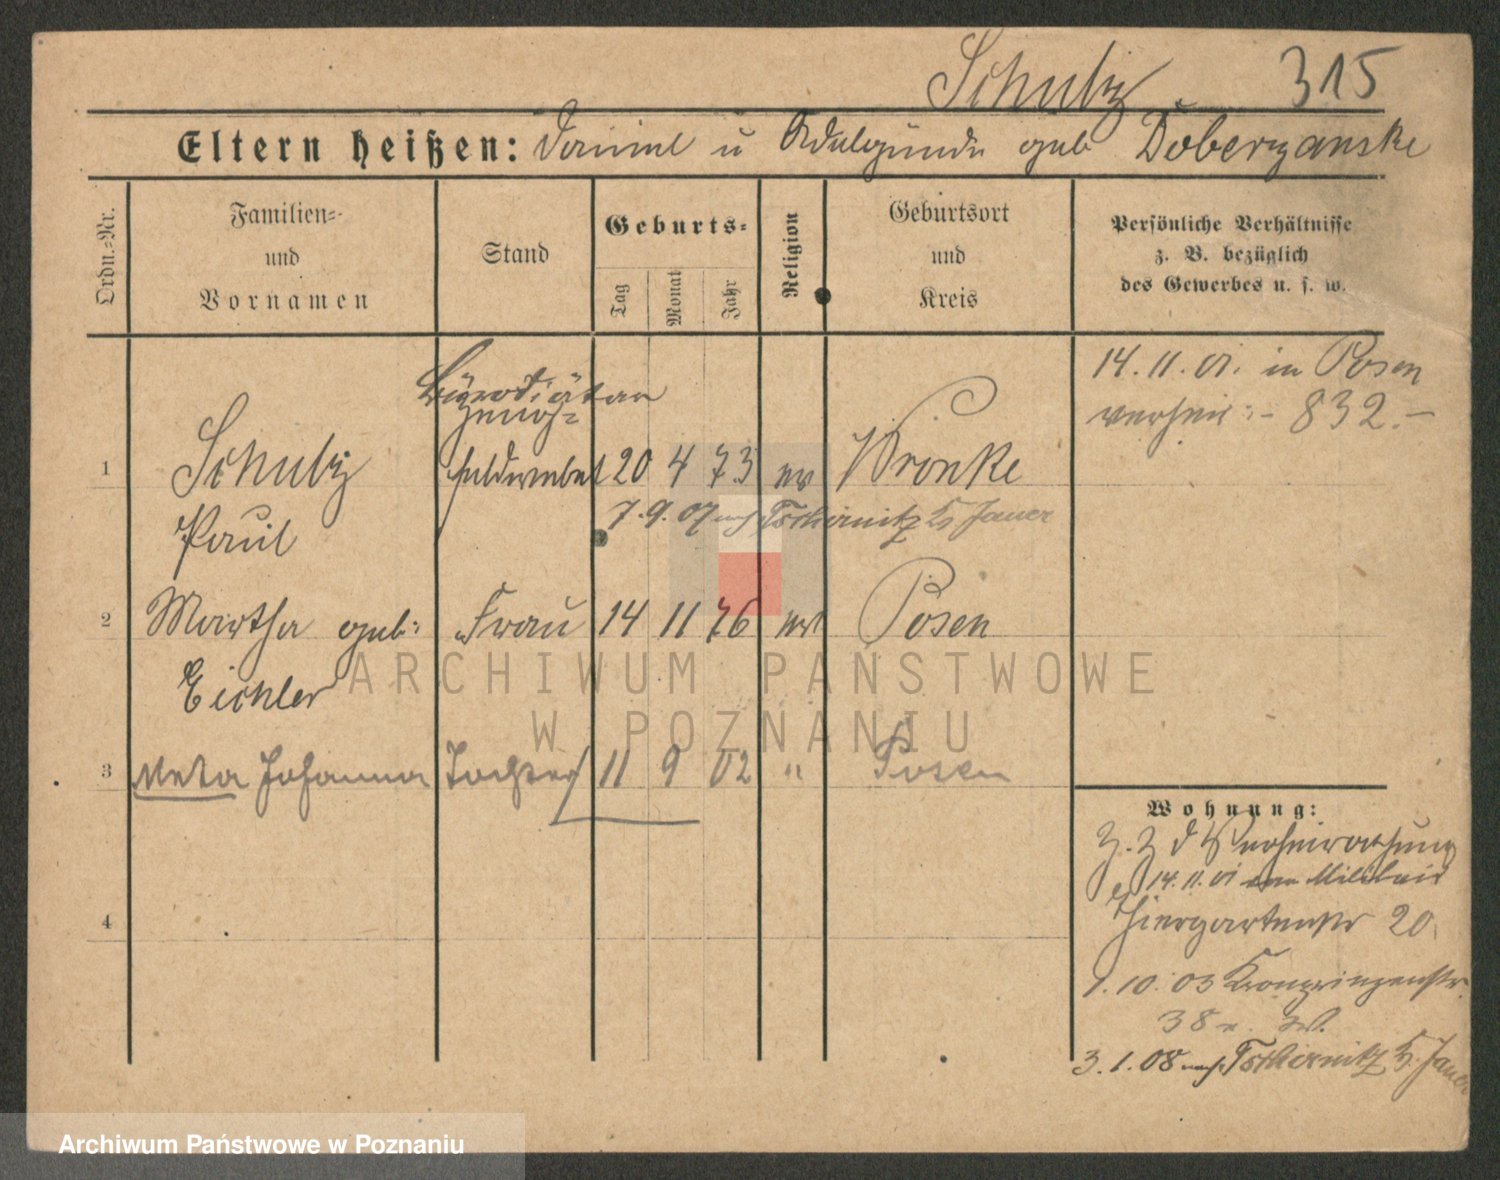 Schulz 315
Eltern heißen: Daniel u Adelgunde geb Doberzanske
Ordn.=Nr.
Familien=
und
Vornamen
Stand
Geburts=
Tag
Monat
Jahr
Religion
Geburtsort
und
Kreis
Persönliche Verhältnisse
z. B. bezüglich
des Gewerbes u. s. w.
14.11.01. in Posen
verheir:- 832.-
Bürodiätar
1 Schulz feldwebel 20 4 73 ev Wronke
Paul
7.9.07 nach Tschirnitz Jauer
2 Martha geb: Frau 14 11 76 ev Posen
Eichler
3 Meta Johanna Tochter 11 9 02 " Posen
4
Wohnung:
z. Z d Verheirathung
14.11.01 Militair
Thiergartenstr 20
1.10.03 Kronprinzenstr.
38
3.1.08 nach Tschirnitz Jauer
ARCHIWUM PAŃSTWOWE
W POZNANIU
Archiwum Państwowe w Poznaniu